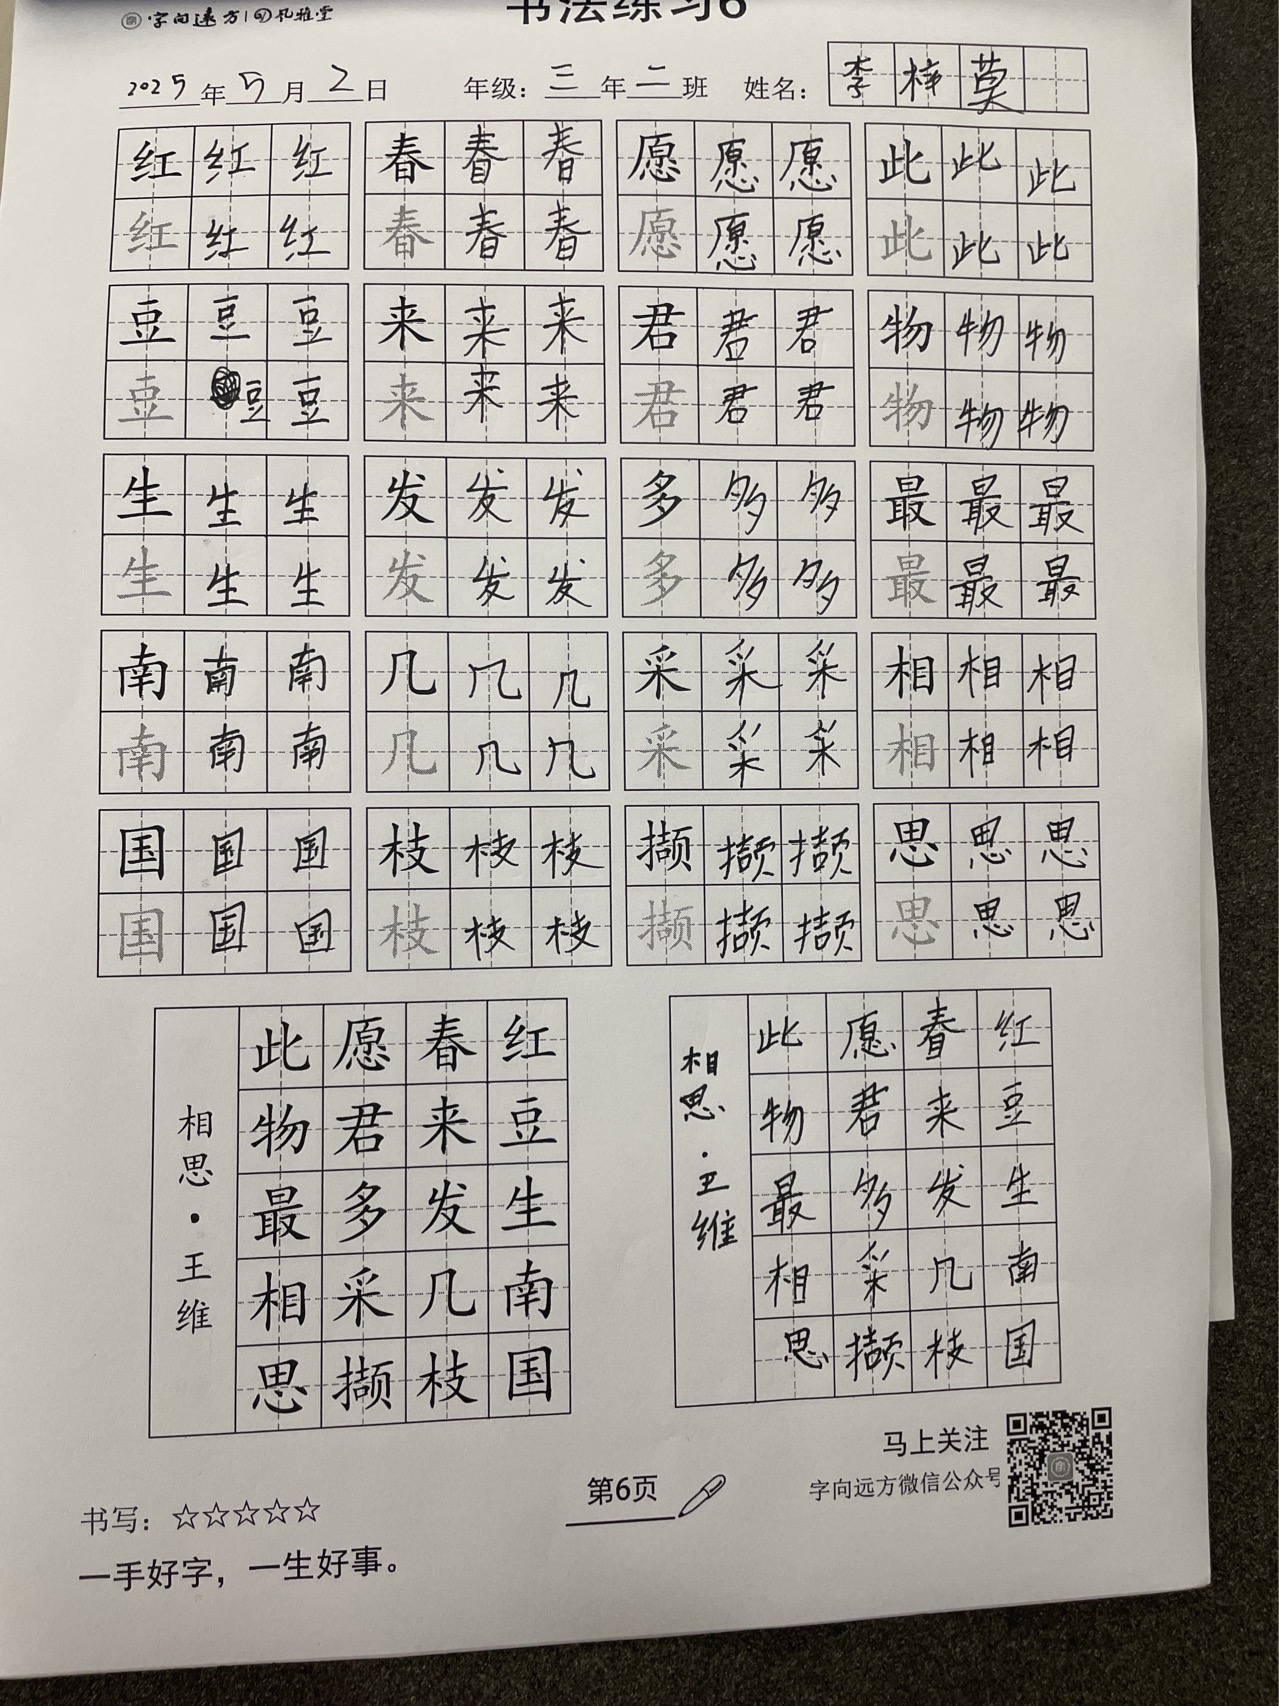 字向远方 风雅堂
书法练习6
2025年5月2日 年级：三年二班 姓名：李梓莫
红红红 春春春 愿愿愿 此此此
红红红 春春春 愿愿愿 此此此
豆豆豆 来来来 君君君 物物物
豆豆豆 来来来 君君君 物物物
生生生 发发发 多多多 最最最
生生生 发发发 多多多 最最最
南南南 几几几 采采采 相相相
南南南 几几几 采采采 相相相
国国国 枝枝枝 撷撷撷 思思思
国国国 枝枝枝 撷撷撷 思思思
红豆生南国
春来发几枝
愿君多采撷
此物最相思
相思·王维
红豆生南国
春来发几枝
愿君多采撷
此物最相思
相思·王维
马上关注
字向远方微信公众号
第6页
书写：☆☆☆☆☆
一手好字，一生好事。